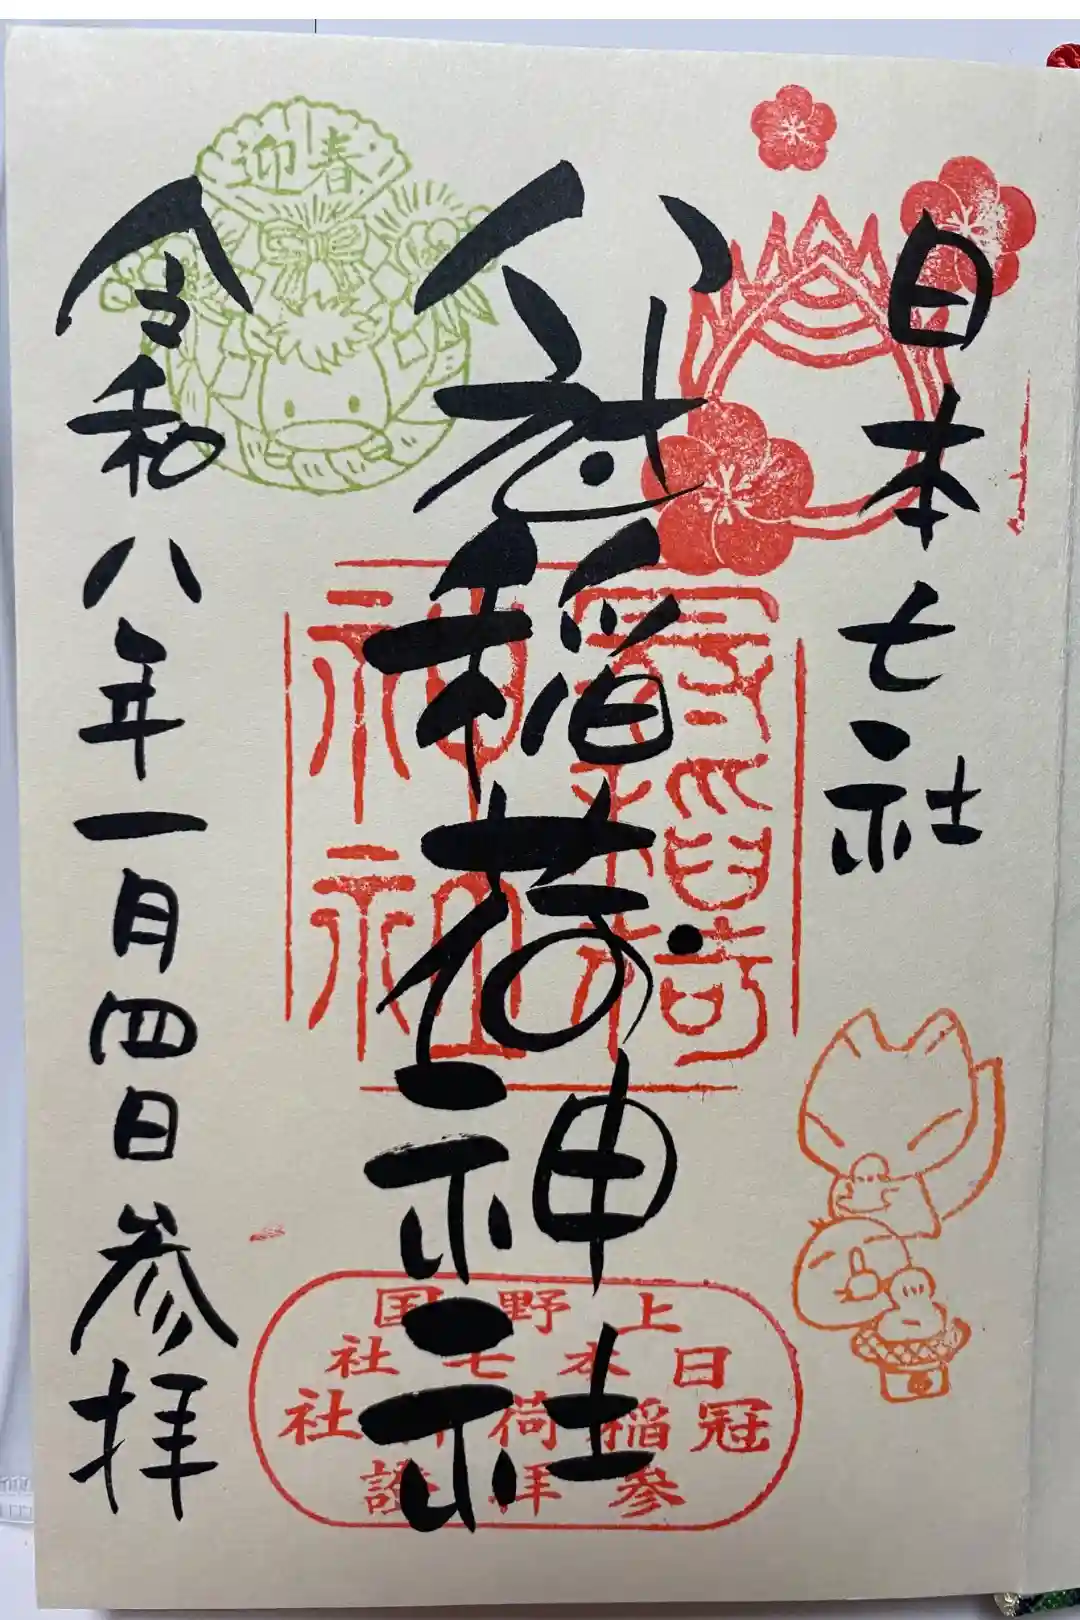 日本七社
冠稲荷神社
令和八年一月四日参拝
迎春
冠稲荷
神社
上野国
日本七社
冠稲荷神社
参拝證